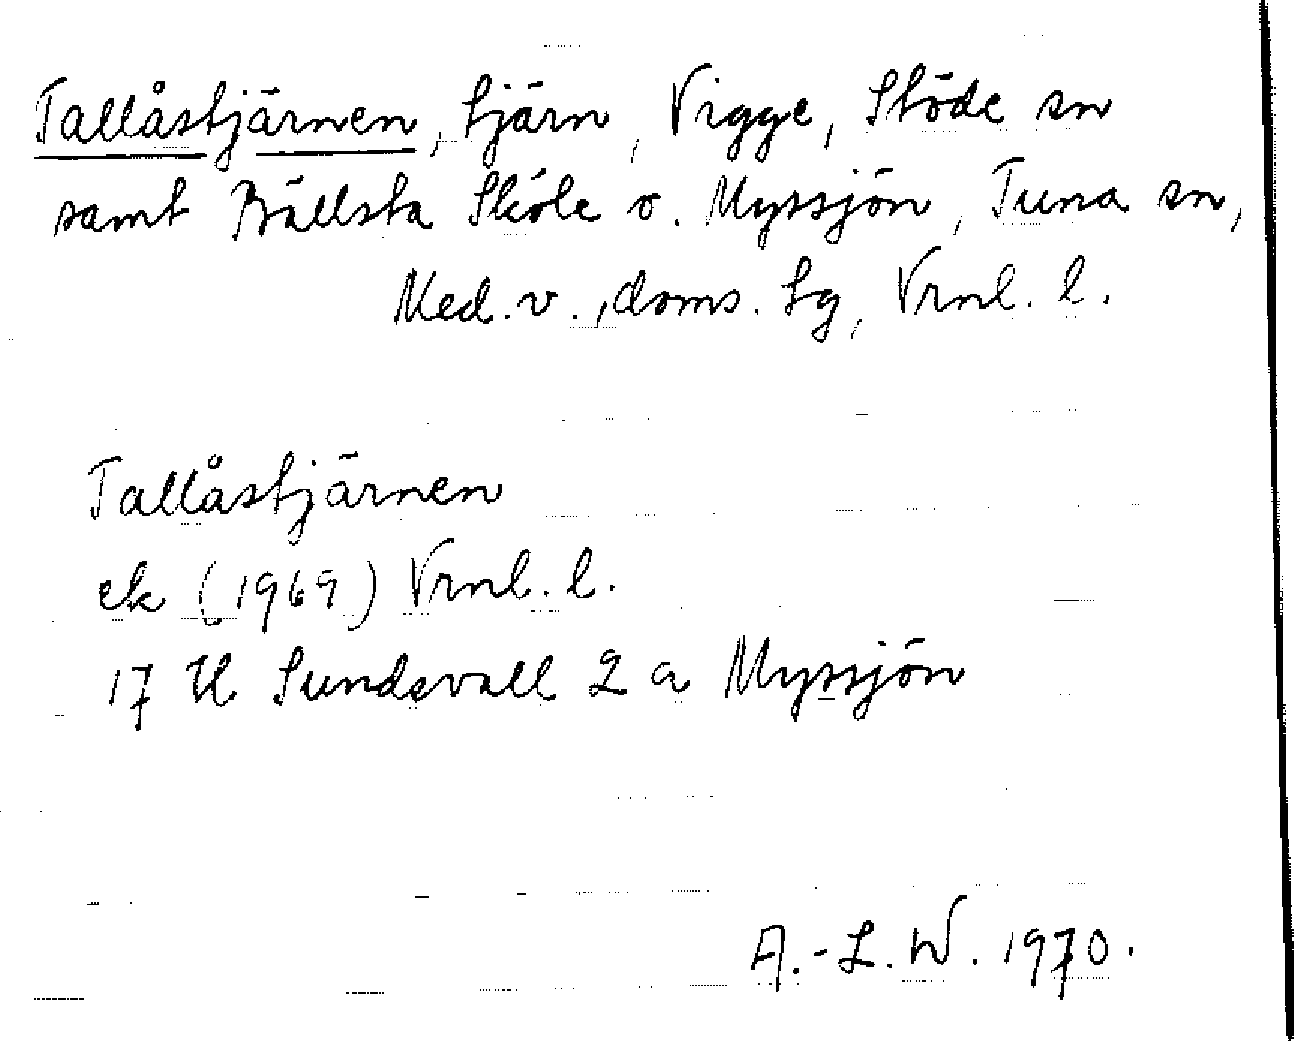 Tallåstjärnen, tjärn, Vigge, Stöde sn
samt Bällsta Sköle o. Myssjön, Tuna sn,
Med. v., doms. Lg, Vrnl. l.
Tallåstjärnen
ek (1969) Vrnl. l.
17 H Sundsvall 2 a Myssjön
A.-L. W. 1970.